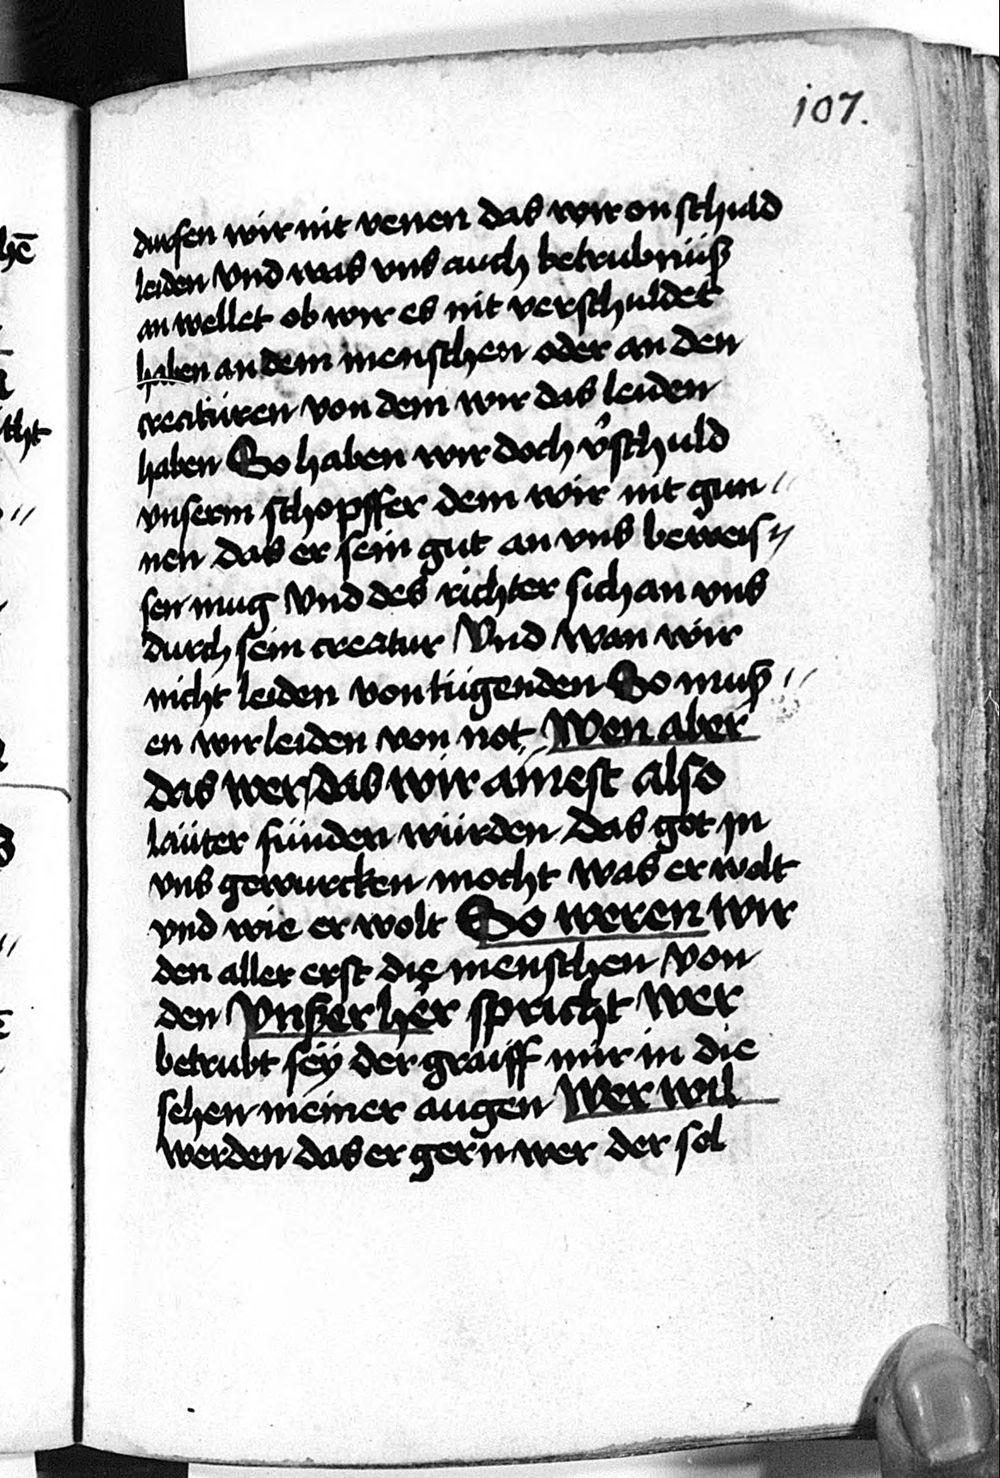 107.
durfen wir nit venen das wir on schuld
leiden Vnd was vns auch betrubnüß
an wellet ob wir es nit verschuldet
haben an dem menschen oder an den
creatüren von dem wir das leiden
haben So haben wir doch v̓schuld
vnserm schopffer dem wir nit gun //
nen das er sein gut an vns beweis //
sen mug Vnd des richter sich an vns
durch sein creatur Vnd wan wir
nicht leiden von tügenden So muß //
en wir leiden von not Wen aber
das wer das wir ainest also
läuter fünden würden das got in
vns gewurcken mocht was er wolt
vnd wie er wolt So weren wir
den aller erst die menschen von
den Vnßer her spricht wer
betrubt sey der graiff mir in die
sehen meiner augen Wer wil
werden das er gern wer der sol